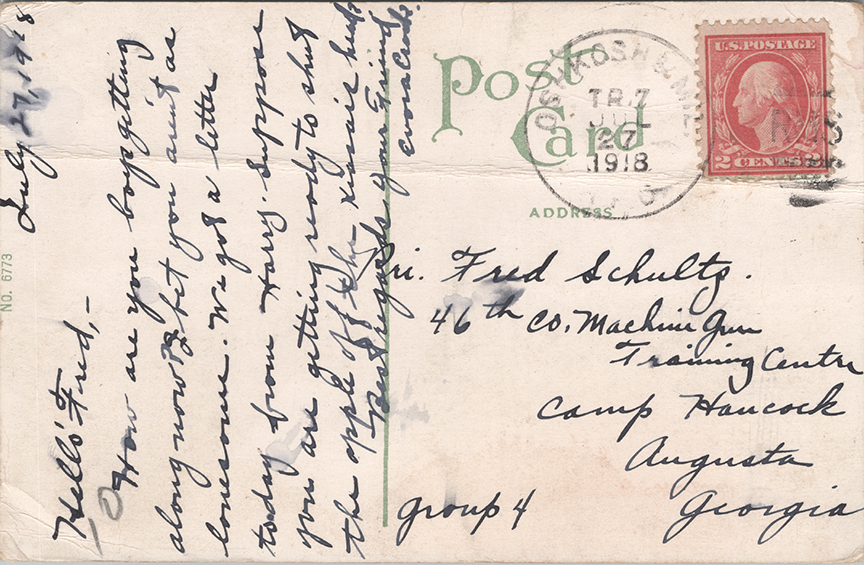 July 27, 1918
Hello Fred,-
How are you boys getting
along now? I bet you ain't as
lonesome. We got a letter
today from Harry. Suppose
you are getting ready to shut
the apple off the kaiser's
Best regards your Friend
POST CARD
ADDRESS
NO. 6773
U.S. POSTAGE
2 CENTS 2
OSHKOSH &
TR.7
JUL
27
1918
Pri. Fred Schultz.
46th Co. Machine Gun
Training Centre
Camp Hancock
Augusta
Georgia
group 4